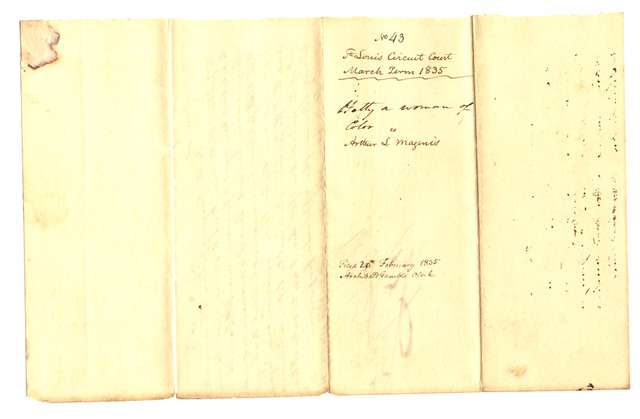 No 43
St Louis Circuit Court
March Term 1835
a woman of
Color vs
Arthur L Magenis
Filed February 1835
Archibald Gamble Clerk